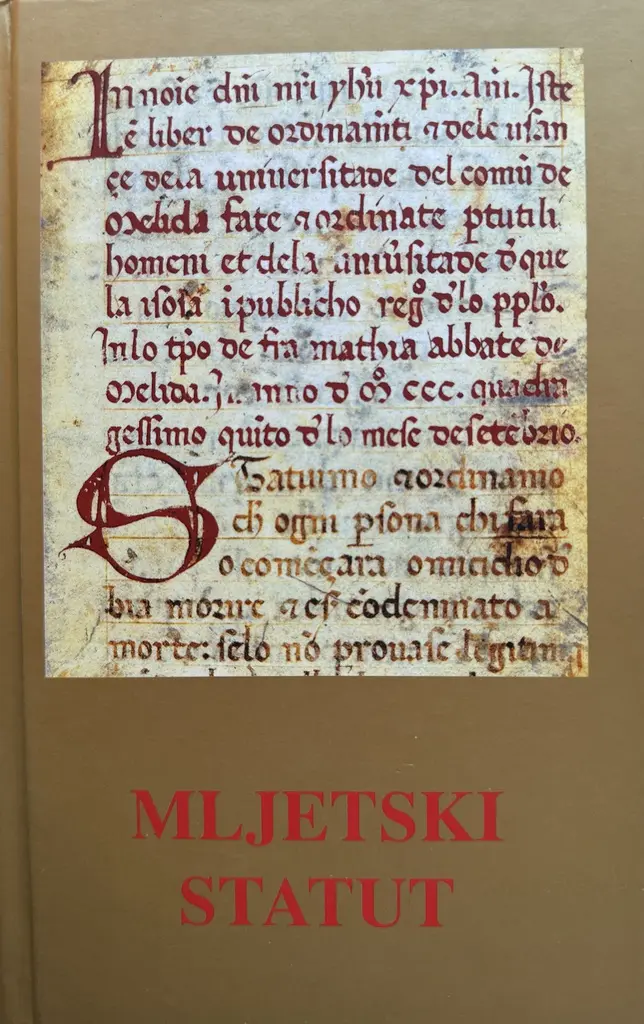 In noīe dnī nrī yhū xpī. Am̄. Iste
ē liber de ordinam̄ti ⁊ dele usan
çe dela uniuersitade del comū de
Melida fate ⁊ ordinate p̱ tuti li
homeni et dela uniūsitade d̄ que
la isola ī publicho reg̊ d̄ lo pplo.
In lo tp̄o de fra mathia abbate de
Melida. In anno d̄ M̊ ccc. quadra
gessimo quīto d̄ lo mese de setēbrio.
Statuimo ⁊ ordinamo
ch̄ ogni p̱sona chi fara
o comēçara omicidio d̄
bia morire ⁊ es̄ cōdennato a
morte: se lo nō prouase legitim
MLJETSKI
STATUT